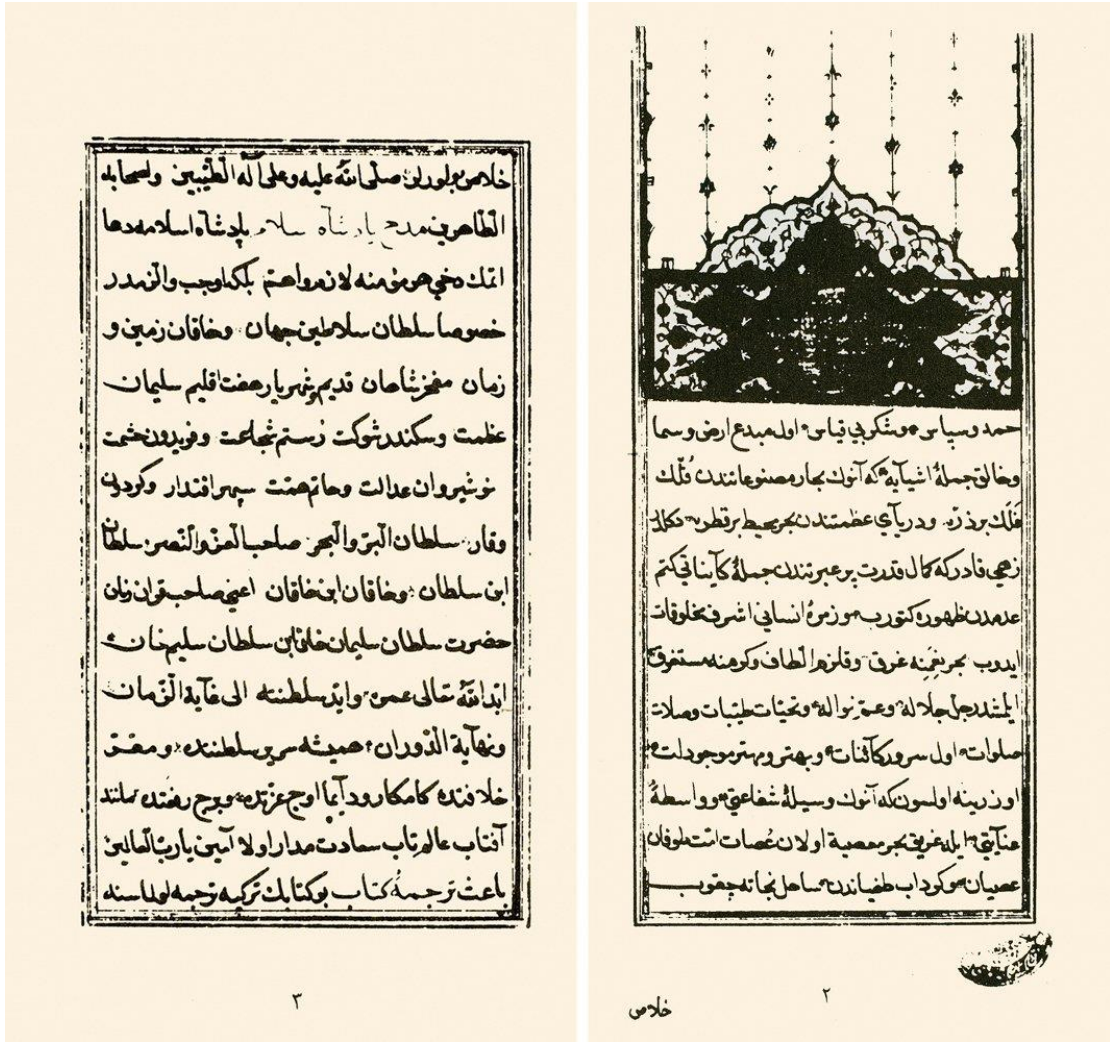 حمد و سپاس و شكر بي قياس اول مبدع ارض و سما
و خالق جملهٔ اشيآيه كه آنوك بحار مصنوعاتندن فُلك
فَلَك بر ذرّه و درياي عظمتندن بحر محيط بر قطره دكلدر
زهي قادر كه كمال قدرت بر عبرتندن جملهٔ كآيناتي كتم
عدمدن ظهوره كتورب و زمرهٔ انساني اشرف مخلوقات
ايدوب بحر نِعَمِنه غرق و قلزم الطاف و كرمنه مستغرق
ايلمشدر جلّ جلاله و عمّ نواله و تحيّات طيّبات و صلات
صلوات اول سرور كآئنات و بهتر و مهتر موجودات
اوزرينه اولسون كه آنوك وسيلهٔ شفاعتي و واسطهٔ
عنآيتي ايله غريق بحر معصية اولان عُصات امّت طوفان
عصيان و كرداب طغياندن ساحل نجاته چقوب
خلاص
٢
خلاص بولورلر صلّى الله عليه و على آله الطّيّبين و اصحابه
الطّاهرين مدح پادشاه سلام پادشاه اسلامه دعا
اتمك دخي هر مؤمنه لازم و اهم بلكه اوجب و الزمدر
خصوصا سلطان سلاطين جهان و خاقان زمين و
زمان مفخر شاهان قديم و شهريار هفت اقليم سليمان
عظمت و سكندر شوكت رستم شجاعت و فريدون حشمت
نوشيروان عدالت و حاتم همّت سپهر اقتدار و كردون
وقار سلطان البرّ و البحر صاحب العزّ و النّصر سلطان
ابن سلطان و خاقان ابن خاقان اعني صاحب قران زمان
حضرت سلطان سليمان خان ابن سلطان سليم خان
ابّد الله تعالى عمره و ايّد سلطنته الى غآية الزّمان
و نهآية الدّوران هميشه سرير سلطنتده و مقرّ
خلافتده كامكار و دآيما اوج عزّتده و برج رفعتده مانند
آفتاب عالم تاب سعادت مدار اولا آمين يا ربّ العالمين
باعث ترجمهٔ كتاب بو كتابك تركيه ترجمه اولماسنه
٣